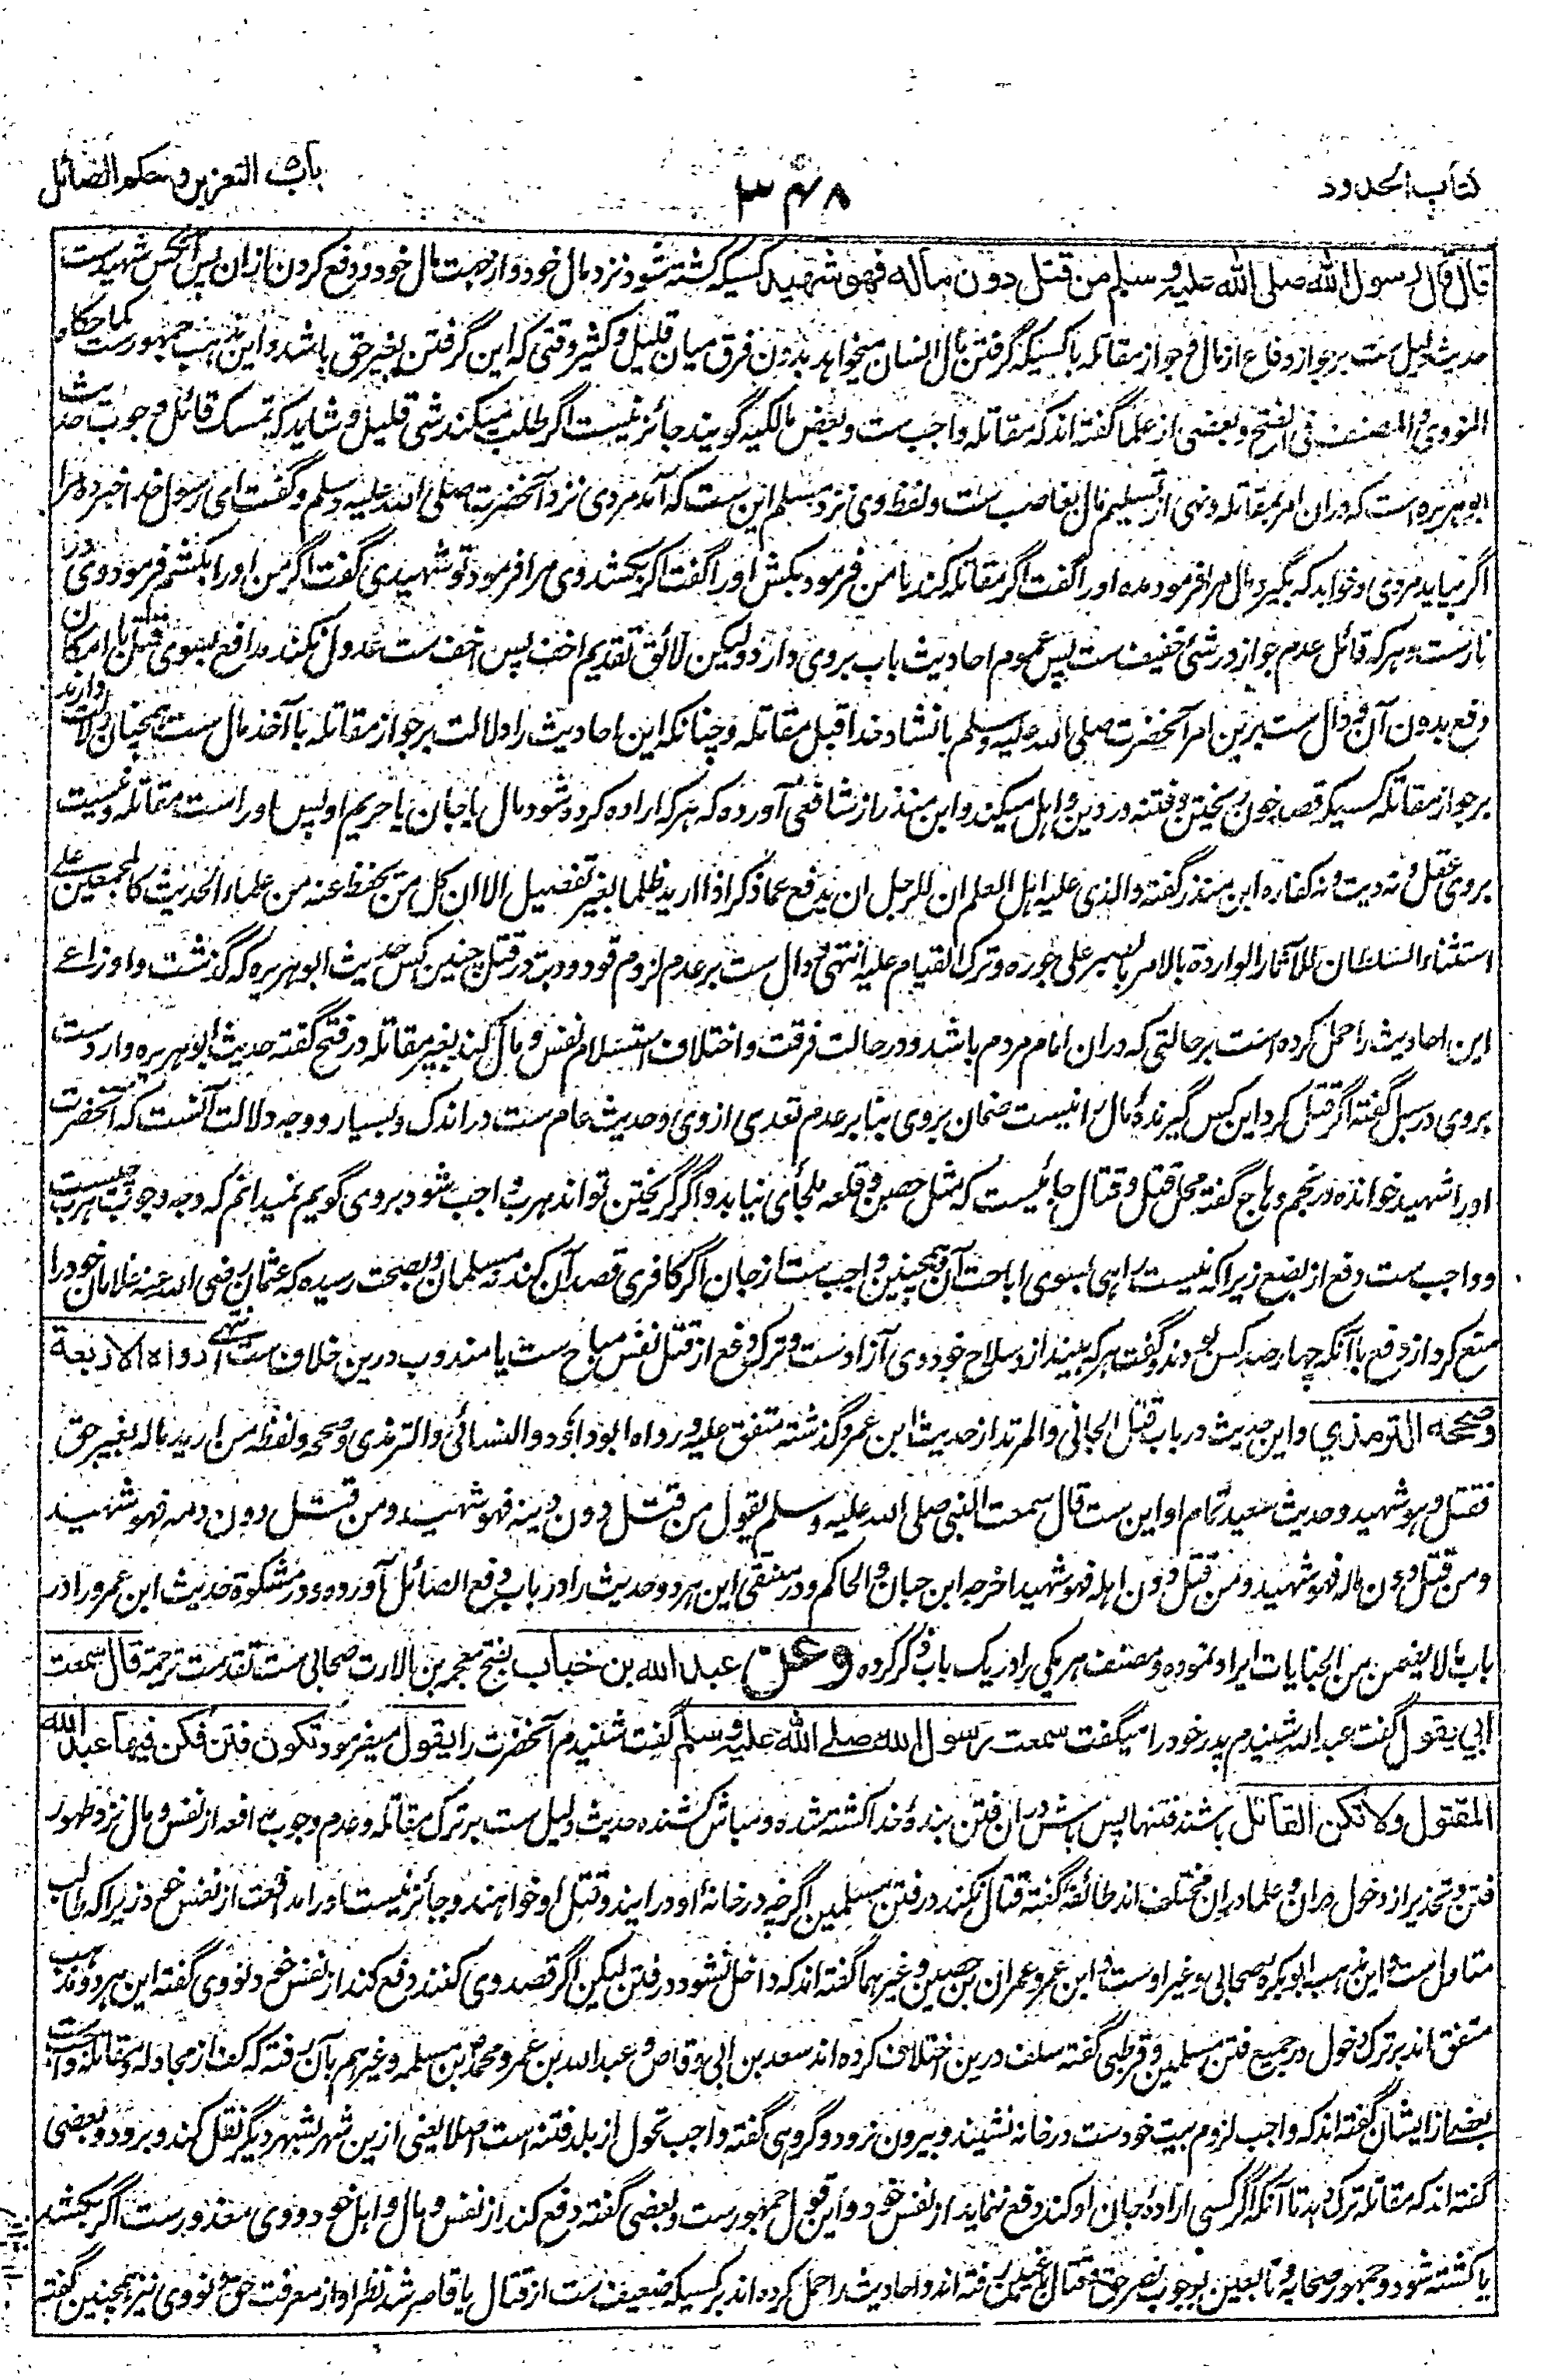 کتاب الحدود
۳۶۸
باب التعزیر و حکم الصائل
قال قال رسول الله صلى الله عليه وسلم من قتل دون ماله فهو شهيد کسیکه کشته شود نزد مال خود و از جهت مال خود و دفع کردن از ان پس آنکس شهیدست
حدیث دلیل ست بر جواز دفاع از مال و جواز مقاتله با کسیکه گرفتن مال انسان میخواهد بدون فرق میان قلیل و کثیر وقتی که این گرفتن بغیر حق باشد و این مذهب جمهورست کما حکاه
النووی و المصنف فی الفتح و بعضی از علما گفته اند که مقاتله واجب ست و بعض مالکیه گویند جائز نیست اگر طلب میکند شی قلیل و شاید که تمسک قائل وجوب حدیث
ابو هریره است که دران امر بمقاتله و نهی از تسلیم مال بغاصب ست و لفظ وی نزد مسلم این ست که آمد مردی نزد آنحضرت صلی الله علیه وسلم و گفت ای رسول خدا خبرده مرا
اگر بیاید مردی و خواهد که بگیرد مال مرا فرمود مده او را گفت اگر مقاتله کند با من فرمود بکش او را گفت اگر بکشد وی مرا فرمود تو شهیدی گفت اگر من او را بکشم فرمود وی در
نارست و هر که قائل عدم جواز در شی خفیف ست پس عموم احادیث باب بروی وارد ولیکن لائق تقدیم اخف پس اخف ست عدول نکند مدافع بسوی قتل با امکان
دفع بدون آن و دال ست برین امر آنحضرت صلی الله علیه وسلم بانشاد خدا قبل مقاتله و چنانکه این احادیث را دلالت بر جواز مقاتله با آخذ مال ست همچنان دلالت دارند
بر جواز مقاتله کسیکه قصد خون ریختن و فتنه در دین و اهل میکند و ابن منذر از شافعی آورده که هر که اراده کرده شود مال یا جان یا حریم او پس او راست مقاتله و نیست
بروی عقل و نه دیت و نه کفاره ابن منذر گفته والذی علیه اهل العلم ان للرجل ان یدفع عما ذکر اذا ارید ظلما بغیر تفصیل الا ان کل من یحفظ عنه من علماء الحدیث کالمجمعین علی
استثناء السلطان للآثار الواردة بالامر بالصبر علی جوره وترک القیام علیه انتهی و دال ست بر عدم لزوم قود و دیت در قتل چنین کس حدیث ابو هریره که گذشت و اوزاعی
این احادیث را حمل کرده است بر حالتی که دران امام مردم باشد و در حالت فرقت و اختلاف استسلام نفس و مال کند بغیر مقاتله در فتح گفته حدیث ابو هریره وارد ست
بروی در سبل گفته اگر قتل کرد این کس گیرندۀ مال را نیست ضمان بروی بنا بر عدم تعدی از وی و حدیث عام ست در اندک و بسیار و وجه دلالت آنست که آنحضرت
او را شهید خوانده در نجم وهاج گفته محل قتل و قتال جائیست که مثل حصن و قلعه ملجأی نیابد و اگر گریختن تواند هرب واجب شود بروی گویم نمیدانم که وجه وجوب هرب چیست
و واجب ست دفع از بضع زیرا که نیست راهی بسوی اباحت آن و همچنین واجب ست از جان اگر کافری قصد آن کند نه مسلمان و بصحت رسیده که عثمان رضی الله عنه غلامان خود را
منع کرد از دفع با آنکه چهار صد کس بودند و گفت هر که بیندازد سلاح خود وی آزادست و ترک دفع از قتل نفس مباح ست یا مندوب درین خلاف ست انتهی رواه الاربعة
وصححه الترمذي و این حدیث در باب قتل الجانی والمرتد از حدیث ابن عمرو گذشته متفق علیه و رواه ابو داؤد و النسائی و الترمذی وصححه ولفظه من ارید ماله بغیر حق
فقتل فهو شهید و حدیث سعید تمام او این ست قال سمعت النبی صلی الله علیه وسلم یقول من قتل دون دینه فهو شهید ومن قتل دون دمه فهو شهید
ومن قتل دون ماله فهو شهید ومن قتل دون اهله فهو شهید اخرجه ابن حبان والحاکم و در منتقی این هر دو حدیث را در باب دفع الصائل آورده و در مشکوة حدیث ابن عمرو را در
باب مالا یضمن من الجنایات ایراد نموده و مصنف هر یکی را در یک باب ذکر کرده وعن عبد الله بن خباب بفتح معجمه بن الارت صحابی ست تقدمت ترجمته قال سمعت
ابي يقول گفت عبد الله شنیدم پدر خود را میگفت سمعت رسول الله صلے الله عليه وسلم گفت شنیدم آنحضرت را يقول میفرمود تكون فتن فكن فيها عبد الله
المقتول ولا تكن القاتل باشند فتنها پس باش دران فتن بندۀ خدا کشته شده و مباش کشنده حدیث دلیل ست بر ترک مقاتله و عدم وجوب مدافعه از نفس و مال نزد ظهور
فتن و تحذیر از دخول دران و علما دران مختلف اند طائفۀ گفته قتال نکند در فتن مسلمین اگرچه در خانۀ او درایند و قتل او خواهند و جائز نیست او را مدافعت از نفس خود زیرا که طالب
متاول ست و این مذهب ابو بکره صحابی و غیر اوست و ابن عمر و عمران بن حصین و غیرهما گفته اند که داخل نشود در فتن لیکن اگر قصد وی کنند دفع کند از نفس خود نووی گفته این هر دو مذهب
متفق اند بر ترک دخول در جمیع فتن مسلمین و قرطبی گفته سلف درین اختلاف کرده اند سعد بن ابی وقاص و عبد الله بن عمر و محمد بن مسلمه و غیرهم بآن رفته که کف از مجادله و مقاتله واجب ست
بعضی از ایشان گفته اند که واجب لزوم بیت خودست در خانه نشیند و بیرون نرود و گروهی گفته واجب تحول از بلد فتنه است اصلا یعنی ازین شهر بشهر دیگر نقل کند و برود و بعضی
گفته اند که مقاتله ترک دهد تا آنکه اگر کسی ارادۀ جان او کند دفع ننماید از نفس خود و این قول جمهورست و بعضی گفته دفع کند از نفس و مال و اهل خود و وی معذورست اگر بکشد
یا کشته شود و جمهور صحابه و تابعین بوجوب نصر حق و قتال باغین رفته اند و احادیث را حمل کرده اند بر کسیکه ضعیف ست از قتال یا قاصر شد نظر او از معرفت حق و نووی نیز همچنین گفته